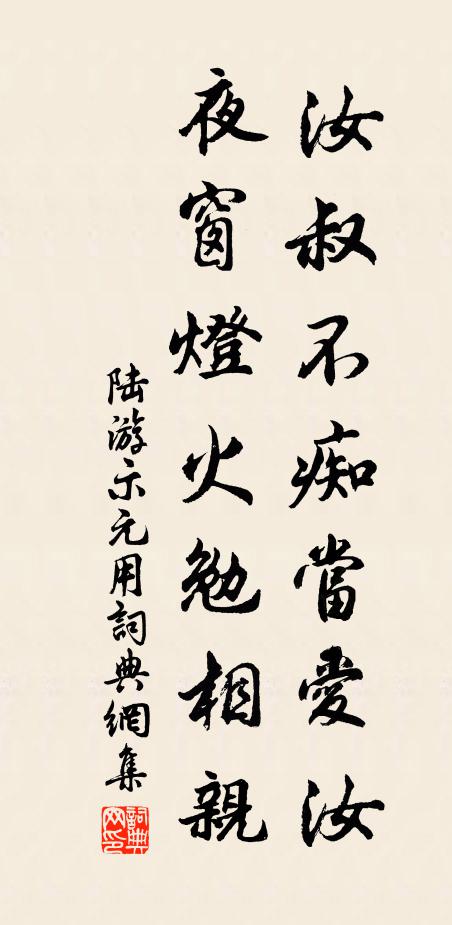 汝叔不痴當愛汝
夜窗燈火勉相親
陆游示元用詞典網集
詞典网印